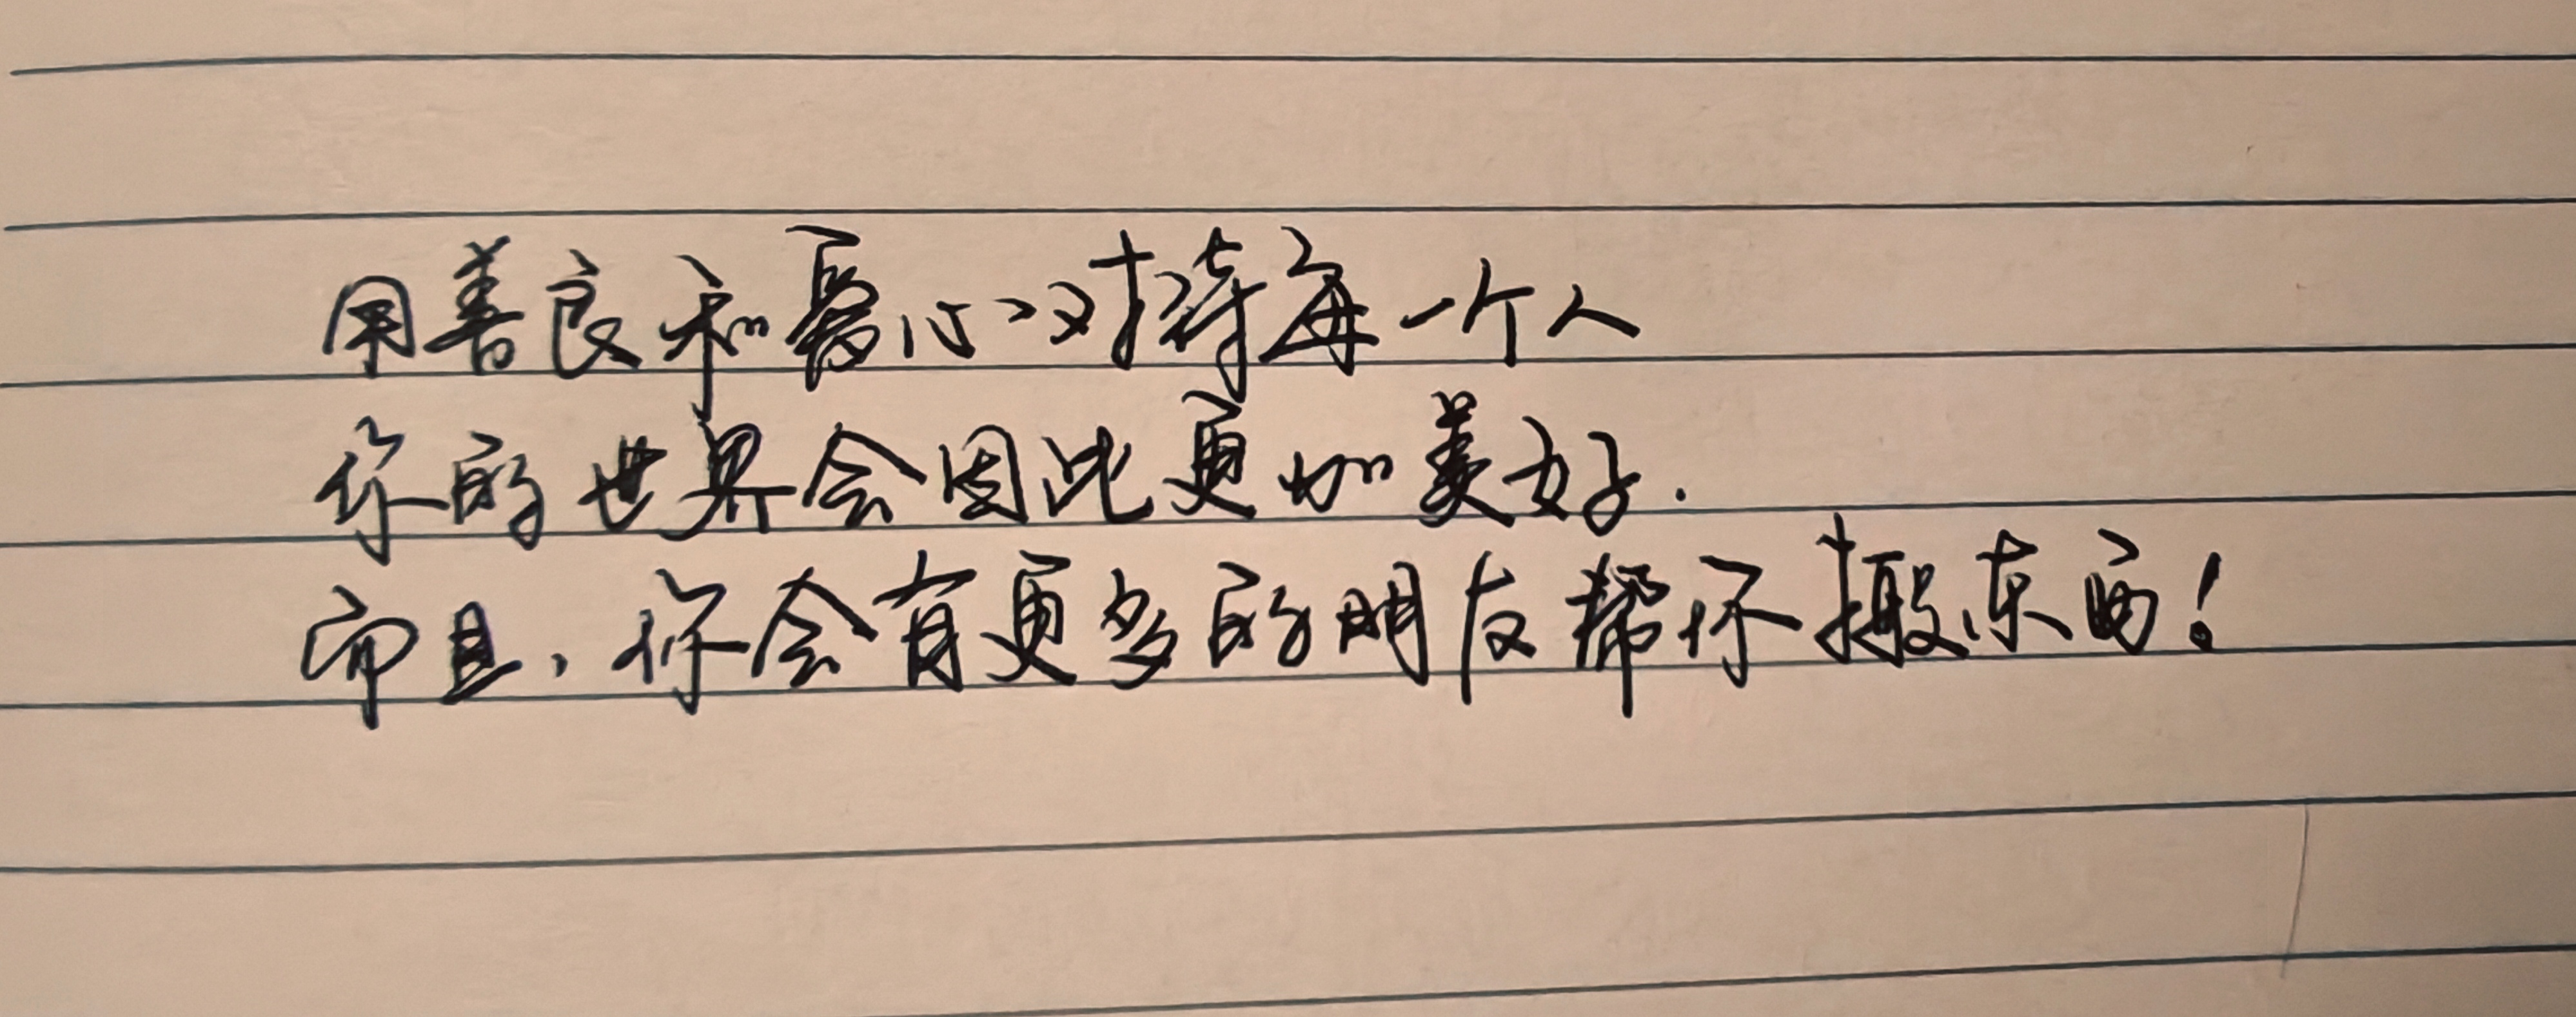 用善良和爱心对待每一个人
你的世界会因此更加美好.
而且,你会有更多的朋友帮你搬东西!